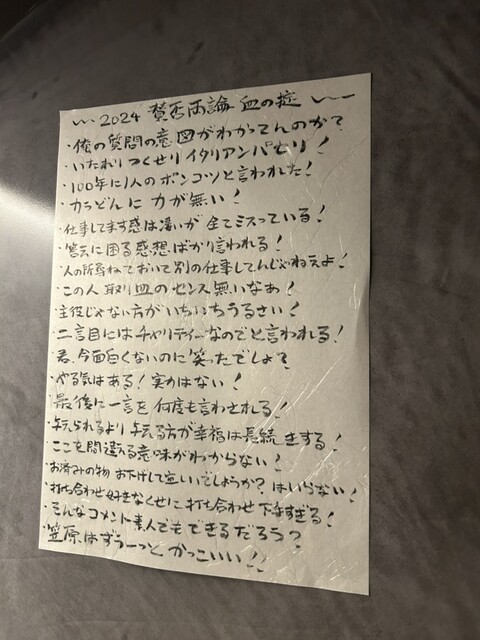 〜 2024 賛否両論 血の掟 〜
・俺の質問の意図がわかってんのか?
・いたれりつくせりイタリアンパセリ!
・100年に1人のポンコツと言われた!
・力うどんに力が無い!
・仕事してます感は凄いが全てミスっている!
・答えに困る感想ばかり言われる!
・人の所尋ねておいて別の仕事してんじゃねえよ!
・この人取り皿のセンス無いなぁ!
・主役じゃない方がいちいちうるさい!
・二言目にはチャリティーなのでと言われる!
・君、今面白くないのに笑ったでしょ?
・やる気はある!実力はない!
・最後に一言を何度も言わされる!
・与えられるより与える方が幸福は長続きする!
・ここを間違える意味がわからない!
・お済みの物お下げして宜しいでしょうか?はいらない!
・打ち合わせ好きなくせに打ち合わせ下手すぎる!
・そんなコメント素人でもできるだろう?
・笠原はずぅーっとかっこいい!!